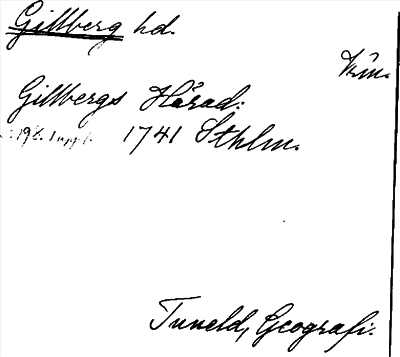 Gillberg hd.
Vrm.
Gillbergs Härad.
1741 Sthlm.
Tuneld, Geografi.